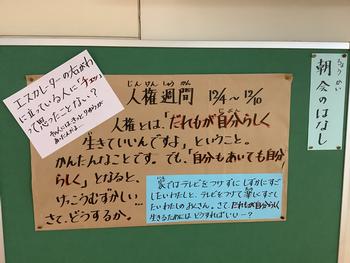 ちょうかい
朝会のはなし
じんけんしゅうかん
人権週間 12/4～12/10
人権とは、「だれもが自分らしく
生きていいんですよ」ということ。
かんたんなことです。でも、「自分もあいても自分
らしく」となると、
けっこうむずかしい…
さて、どうするか。
エスカレーターの右がわ
に立っている人に「チェッ」
って思ったことな～い？
家ではテレビをつけずにしずかにすご
したいわたしと、テレビをつけて楽しくすごし
たいわたしのおくさん。さて、だれもが自分らしく
生きるためにはどうすればいい～？